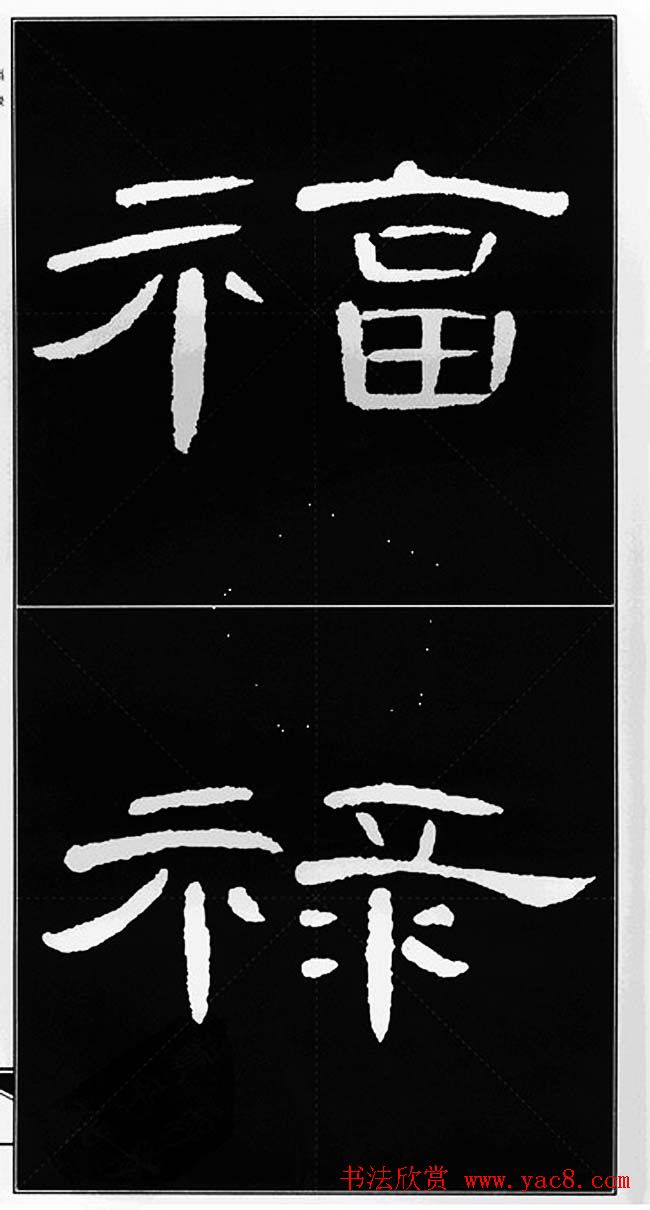 福
禄
书法欣赏 www.yac8.com